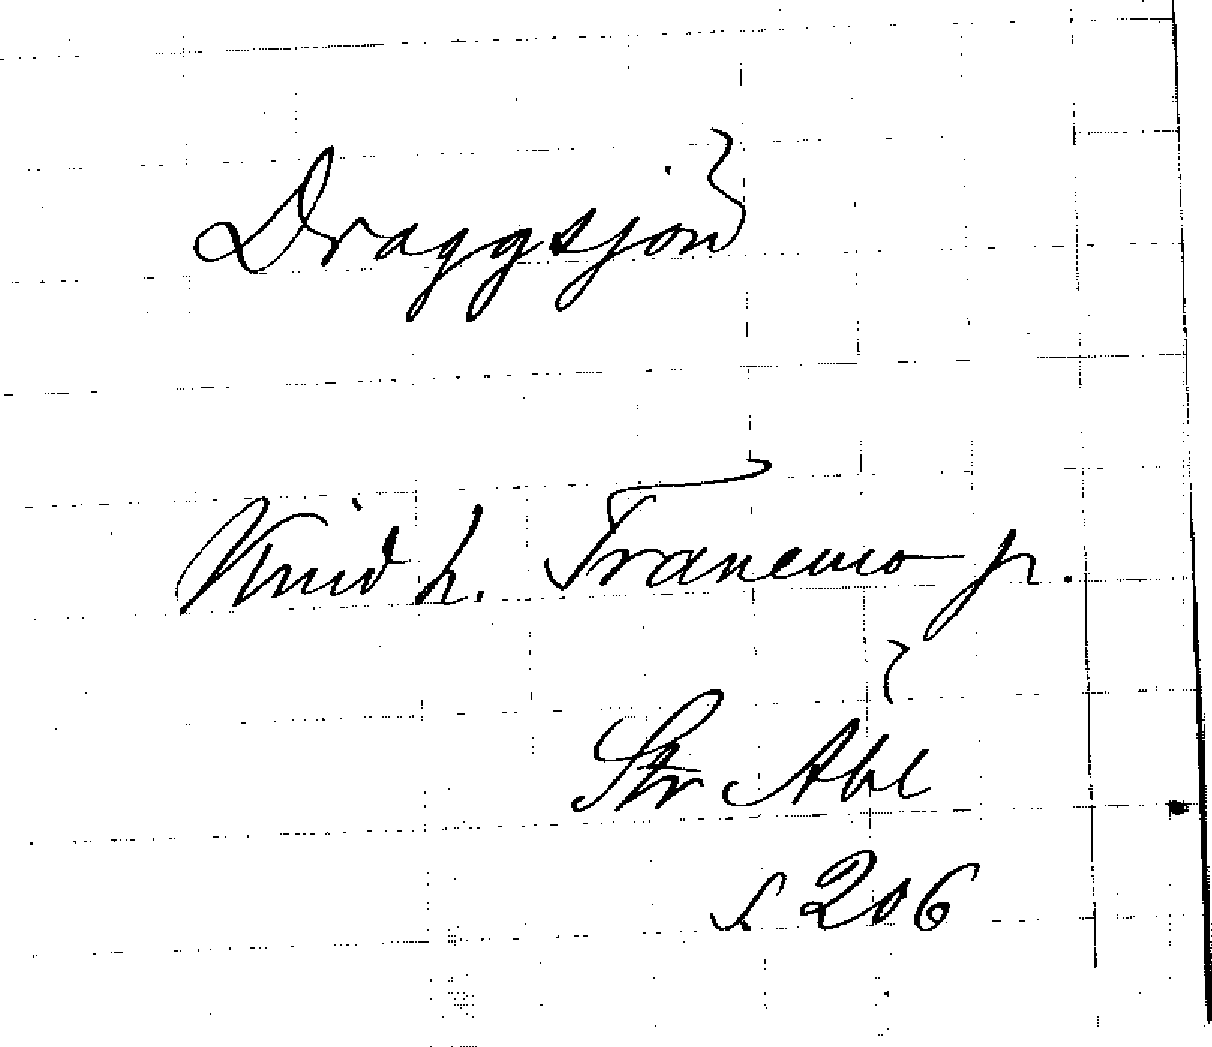 Draggsjön
Kind h. Tranemo p.
Str Abl
s 206